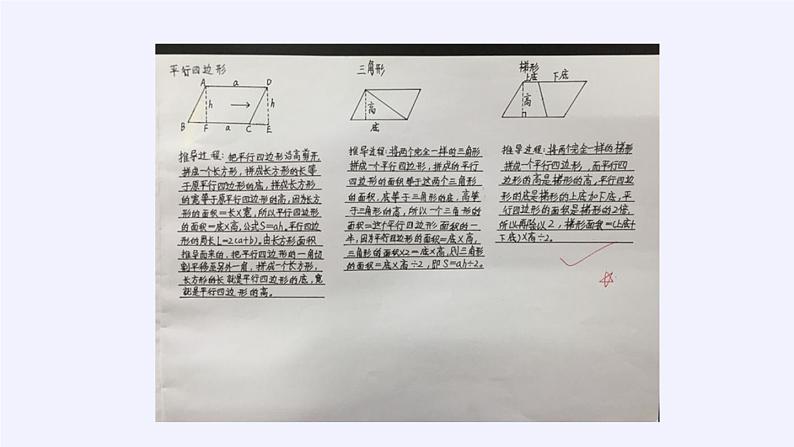 平行四边形
A a D
h h
B F a C E
推导过程:把平行四边形沿高剪开,
拼成一个长方形,拼成长方形的长等
于原平行四边形的底,拼成长方形
的宽等于原平行四边形的高,因为长方
形的面积=长×宽,所以平行四边形
的面积=底×高,公式S=ah。平行四边
形的周长L=2(a+b)。由长方形面积
推导而来的,把平行四边形的一角切
割平移至另外一角,拼成一个长方形,
长方形的长就是平行四边形的底,宽
就是平行四边形的高。
三角形
高
底
推导过程:将两个完全一样的三角形
拼成一个平行四边形,拼成的平行
四边形的面积等于这两个三角形
的面积,底等于三角形的底,高等
于三角形的高,所以一个三角形的
面积=这个平行四边形面积的一
半,因为平行四边形的面积=底×高,
三角形的面积×2=底×高,则三角形
的面积=底×高÷2,即S=ah÷2。
梯形
上底 下底
高
推导过程:将两个完全一样的梯形
拼成一个平行四边形,而平行四
边形的高是梯形的高,平行四边
形的底是梯形的上底加下底,平
行四边形的面积是梯形的2倍,
所以再除以2,梯形面积=(上底+
下底)×高÷2。